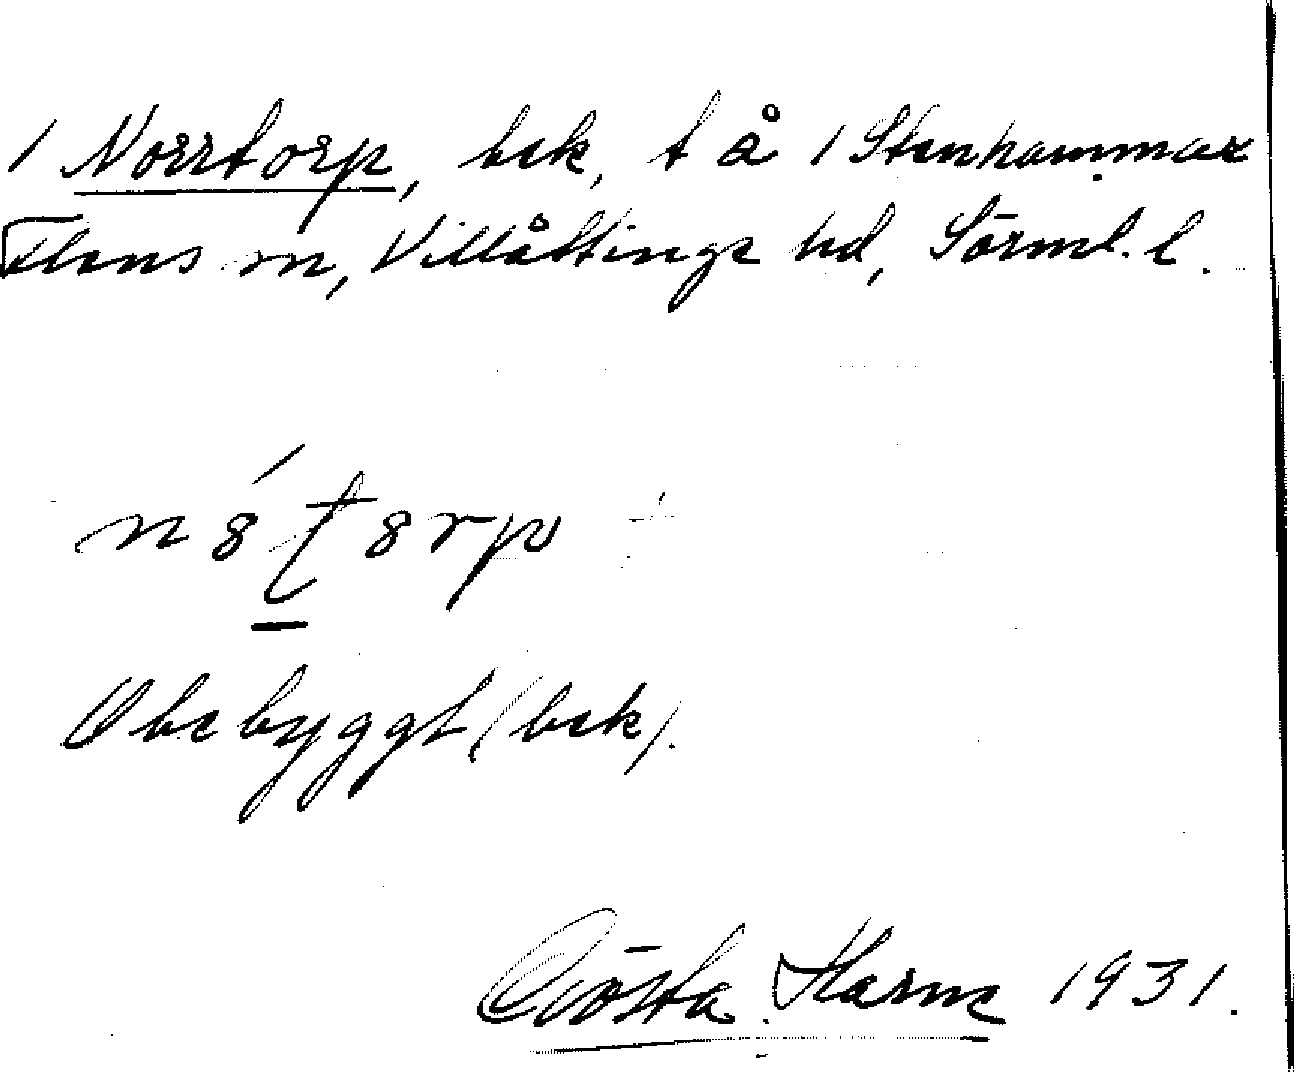 1 Norrtorp, bek, t å 1 Stenhammar
Flens sn, Villåttinge hd, Sörml. l.
Obebyggt (bek).
Gösta Harne 1931.